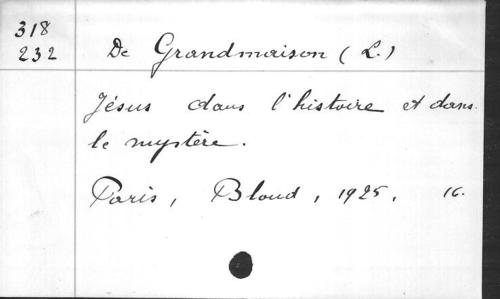 318
232
De Grandmaison (L.)
Jésus dans l'histoire et dans
le mystère.
Paris, Bloud, 1925, 16.